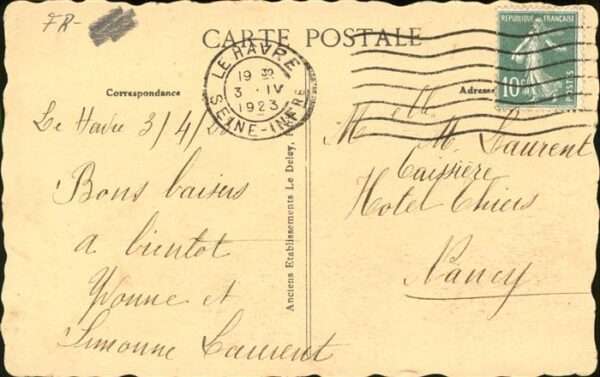 FR-
CARTE POSTALE
REPUBLIQUE FRANÇAISE
10c
POSTES
LE HAVRE
19 30
3 · IV
1923
SEINE-INFRE
Correspondance
Adresse
Le Havre 3/4/
Bons baisers
a bientot
Yvonne et
Simonne Laurent
Anciens Etablissements Le Deley,
M M. Laurent
Caissière
Hotel Thiers
Nancy